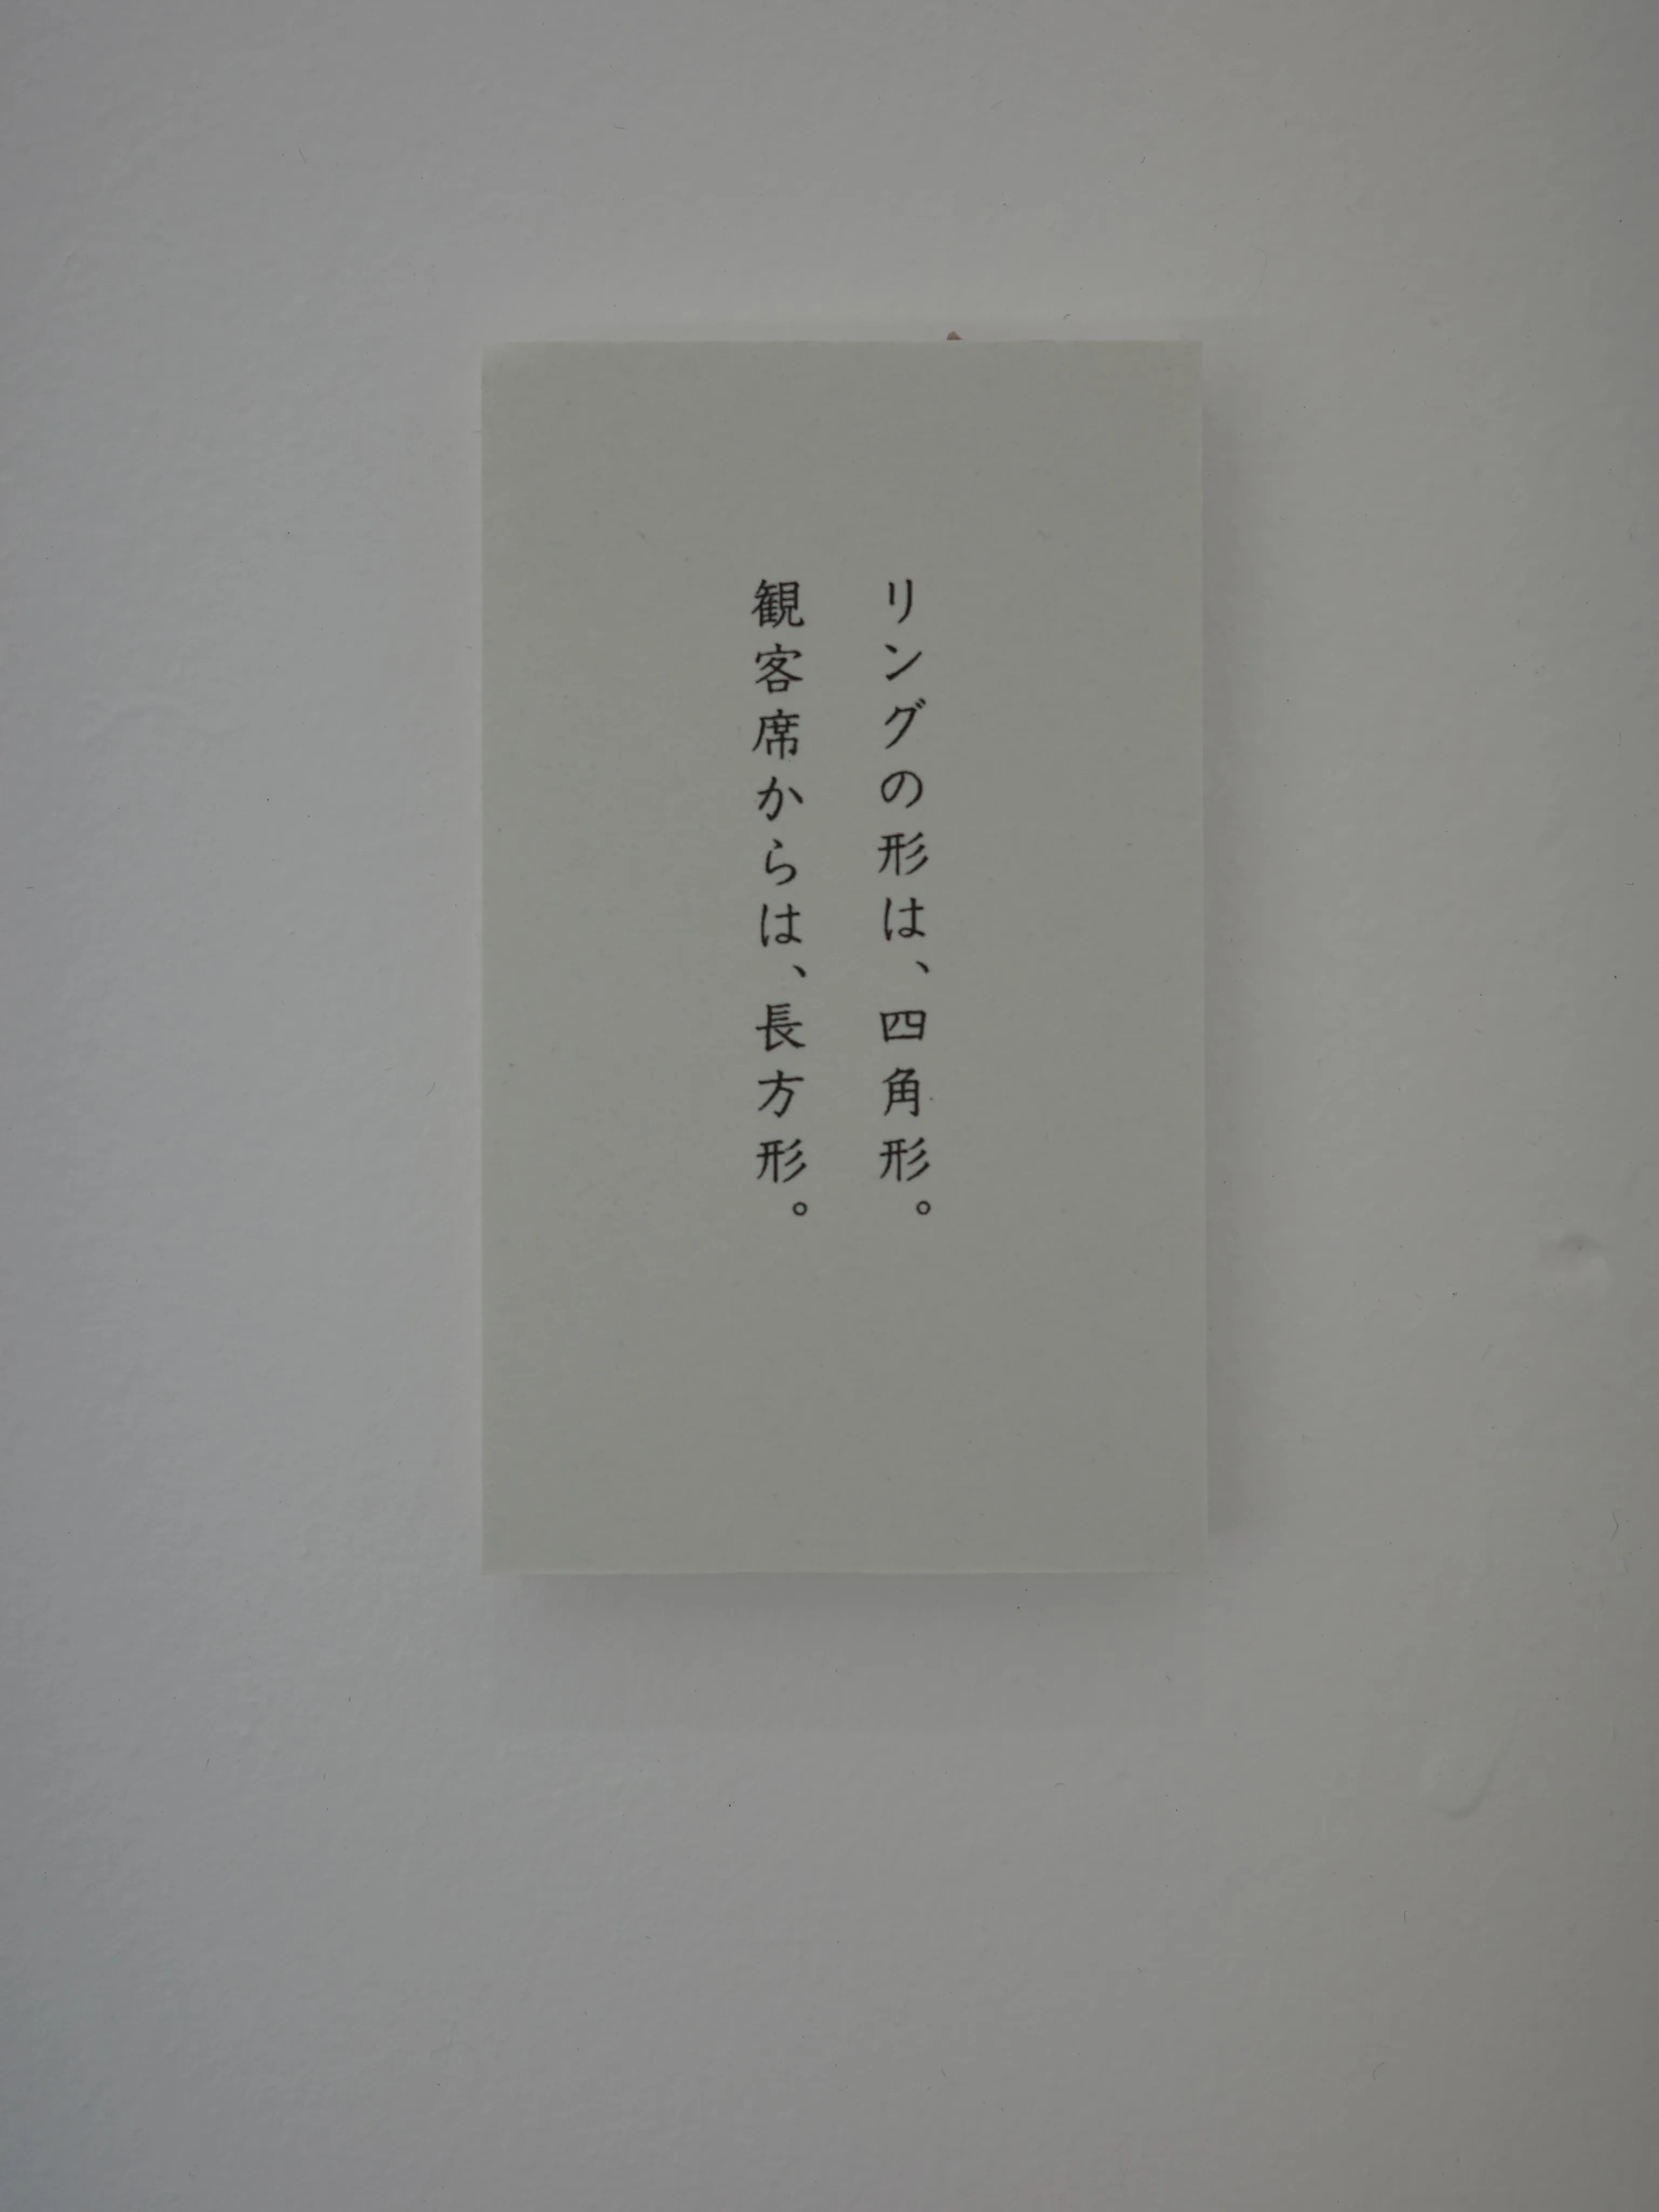 リングの形は、四角形。
観客席からは、長方形。